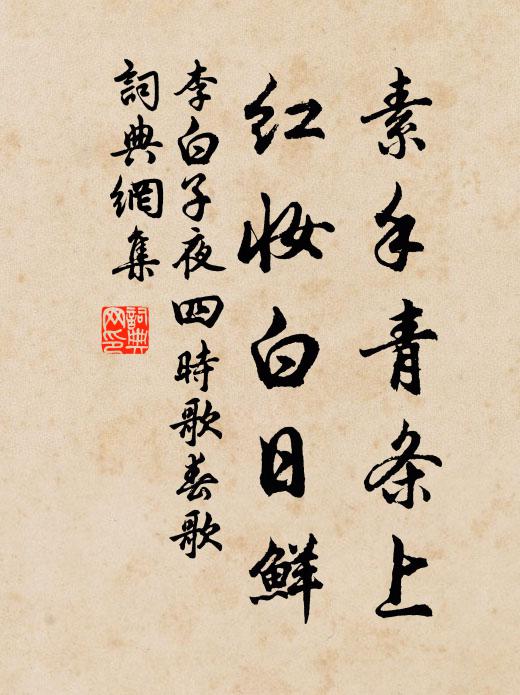 素手青条上
红妝白日鮮
李白子夜四時歌春歌
詞典網集
詞典网印